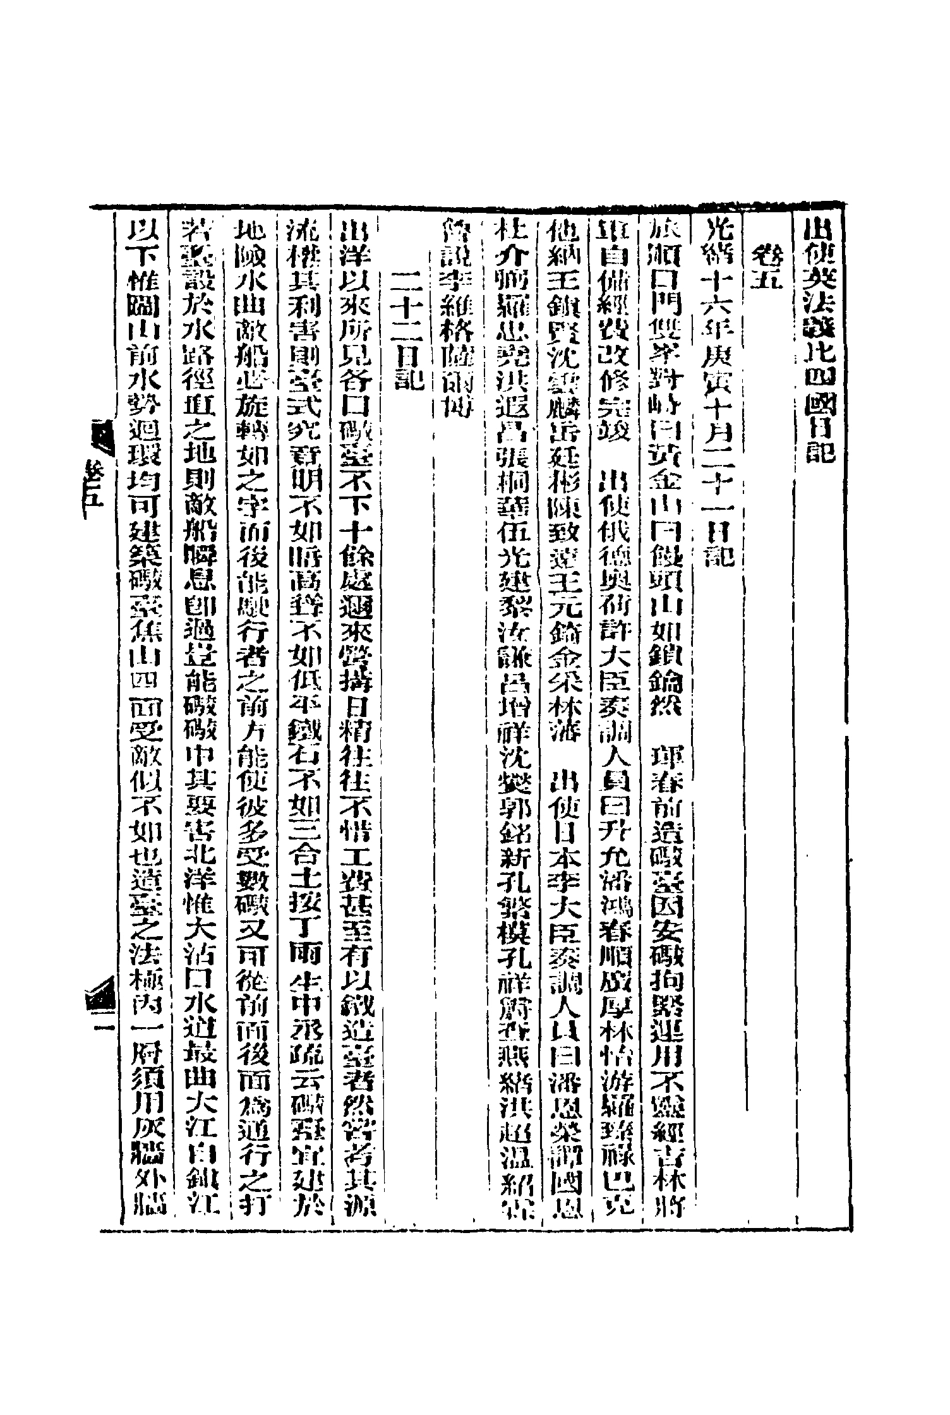 出使英法義比四國日記
卷五
光緒十六年庚寅十月二十一日記
旅順口門雙峯對峙曰黃金山曰饅頭山如鎖鑰然 琿春前造礮臺因安礮拘緊運用不靈經吉林將
軍自備經費改修完竣 出使俄德奧荷許大臣奏調人員曰升允潘鴻春順廣厚林怡游羅臻祿巴克
他納王鎮賢沈 麟岳廷彬陳致遠王元錡金采林藩 出使日本李大臣奏調人員曰潘恩榮譚國恩
杜介弼羅忠堯洪遐昌張桐華伍光建黎汝謙呂增祥沈燮郭銘新孔繁模孔祥 查燕緒洪超溫紹霖
曾說李維格薩爾博
二十二日記
出洋以來所見各口礮臺不下十餘處邇來營搆日精往往不惜工費甚至有以鐵造臺者然嘗考其源
流權其利害則臺式究竟明不如暗高聳不如低平鐵石不如三合土按丁雨生中丞疏云礮臺宜建於
地險水曲敵船必旋轉如之字而後能駛行者之前方能使彼多受數礮又可從前面後面為通行之打
若臺設於水路徑直之地則敵船瞬息卽過豈能礮礮中其要害北洋惟大沽口水道最曲大江自鎮江
以下惟圌山前水勢迴環均可建築礮臺焦山四面受敵似不如也造臺之法極內一層須用灰牆外牆
卷五
一